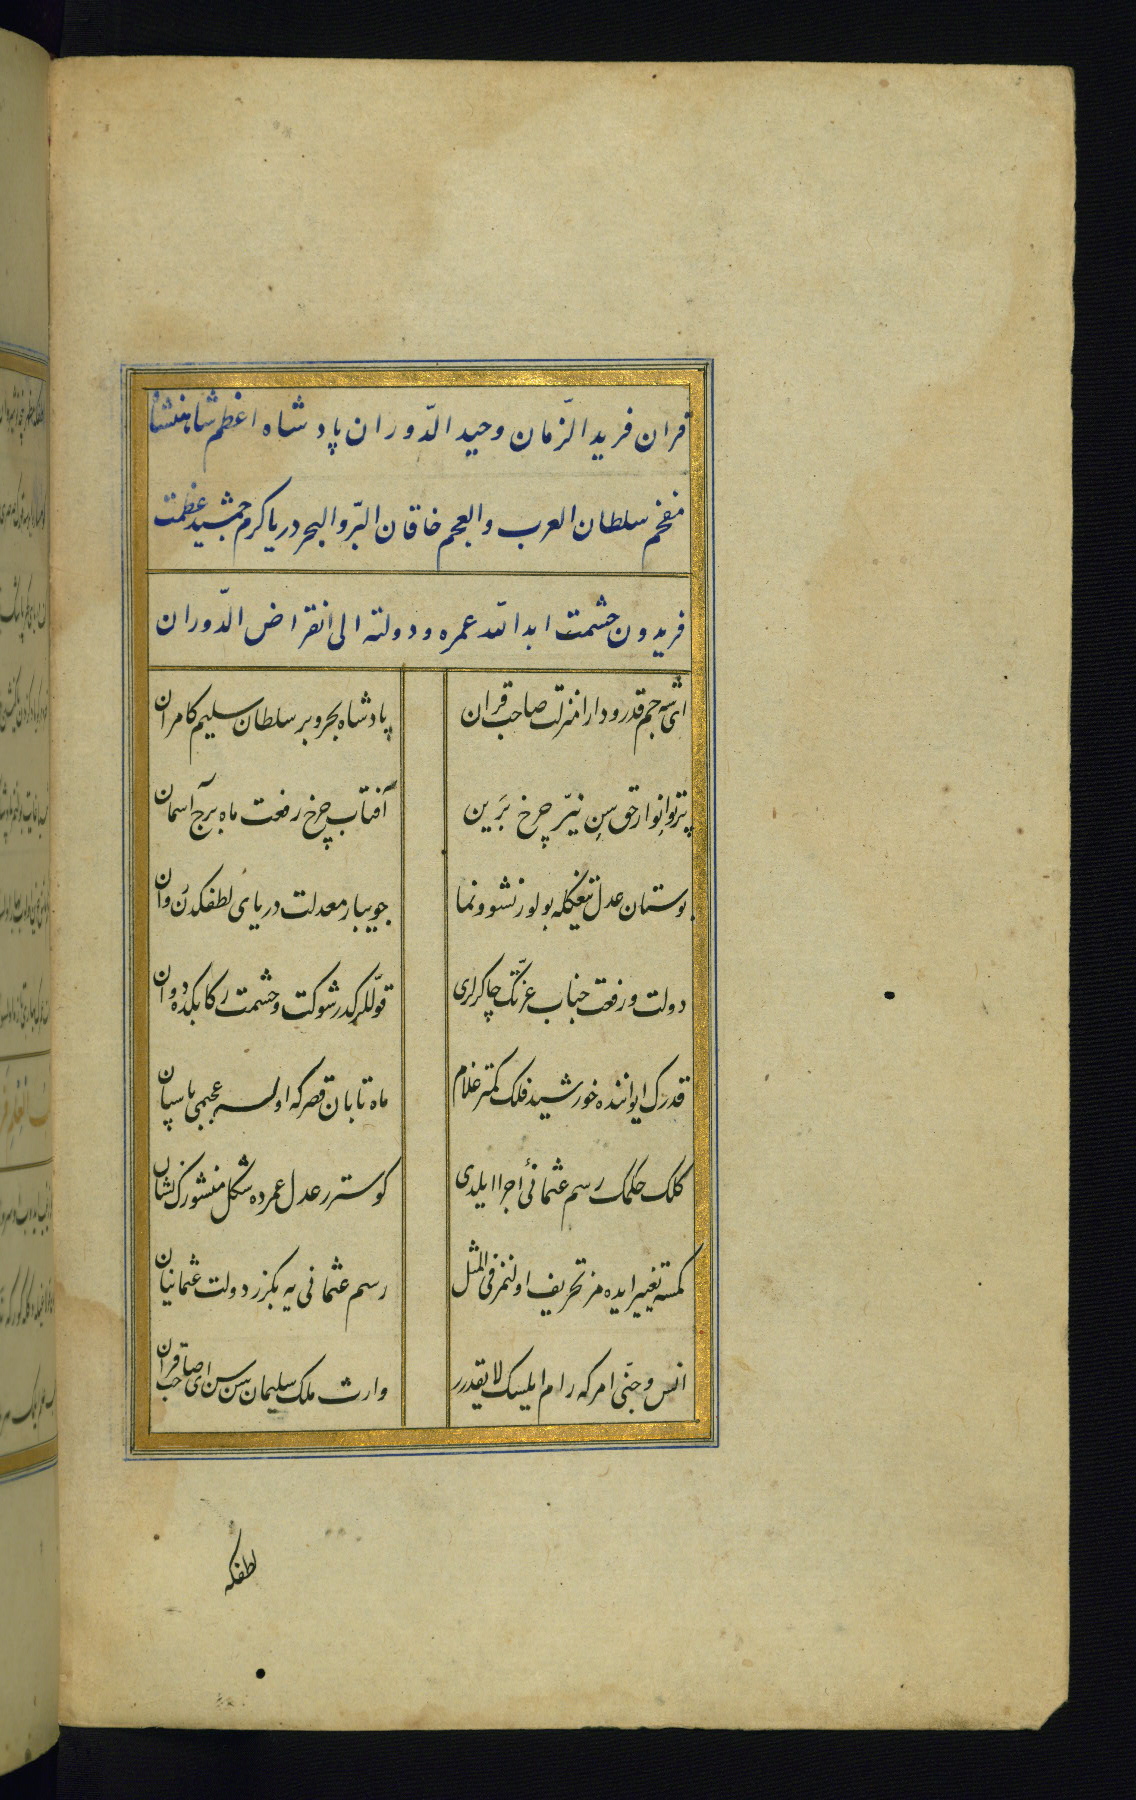 قران فرید الزّمان وحید الدّوران پادشاه اعظم شاهنشاه
مفخم سلطان العرب والعجم خاقان البرّ والبحر دریا کرم جمشید عظمت
فریدون حشمت ابد الله عمره ودولته الی انقراض الدّوران
ای شه جم قدر ودارا منزلت صاحب قران پادشاه بحر و بر سلطان سلیم کامران
پرتو انوار حق سن نیّر چرخ برین آفتاب چرخ رفعت ماه برج آسمان
بوستان عدل تیغکله بولور نشو ونما جویبار معدلت دریای لطفکدن روان
دولت ورفعت جناب عزتک چاکرلری قوللرکدر شوکت وحشمت رکابکده دوان
قدرک ایواننده خورشید فلک کمتر غلام ماه تابان قصرکه اولسه عجمی پاسبان
کلک حکمک رسم عثمانی اجرا ایلدی کوسترر عدل عمرده شکل منشورک نشان
کمسه تغییر ایده مز تحریف اولنمز فی المثل رسم عثمانی یه بکزر دولت عثمانیان
انس وجنّی امرکه رام ایلیسک لایقدرر وارث ملک سلیمان سن سن ای صاحب قران
لطفکه